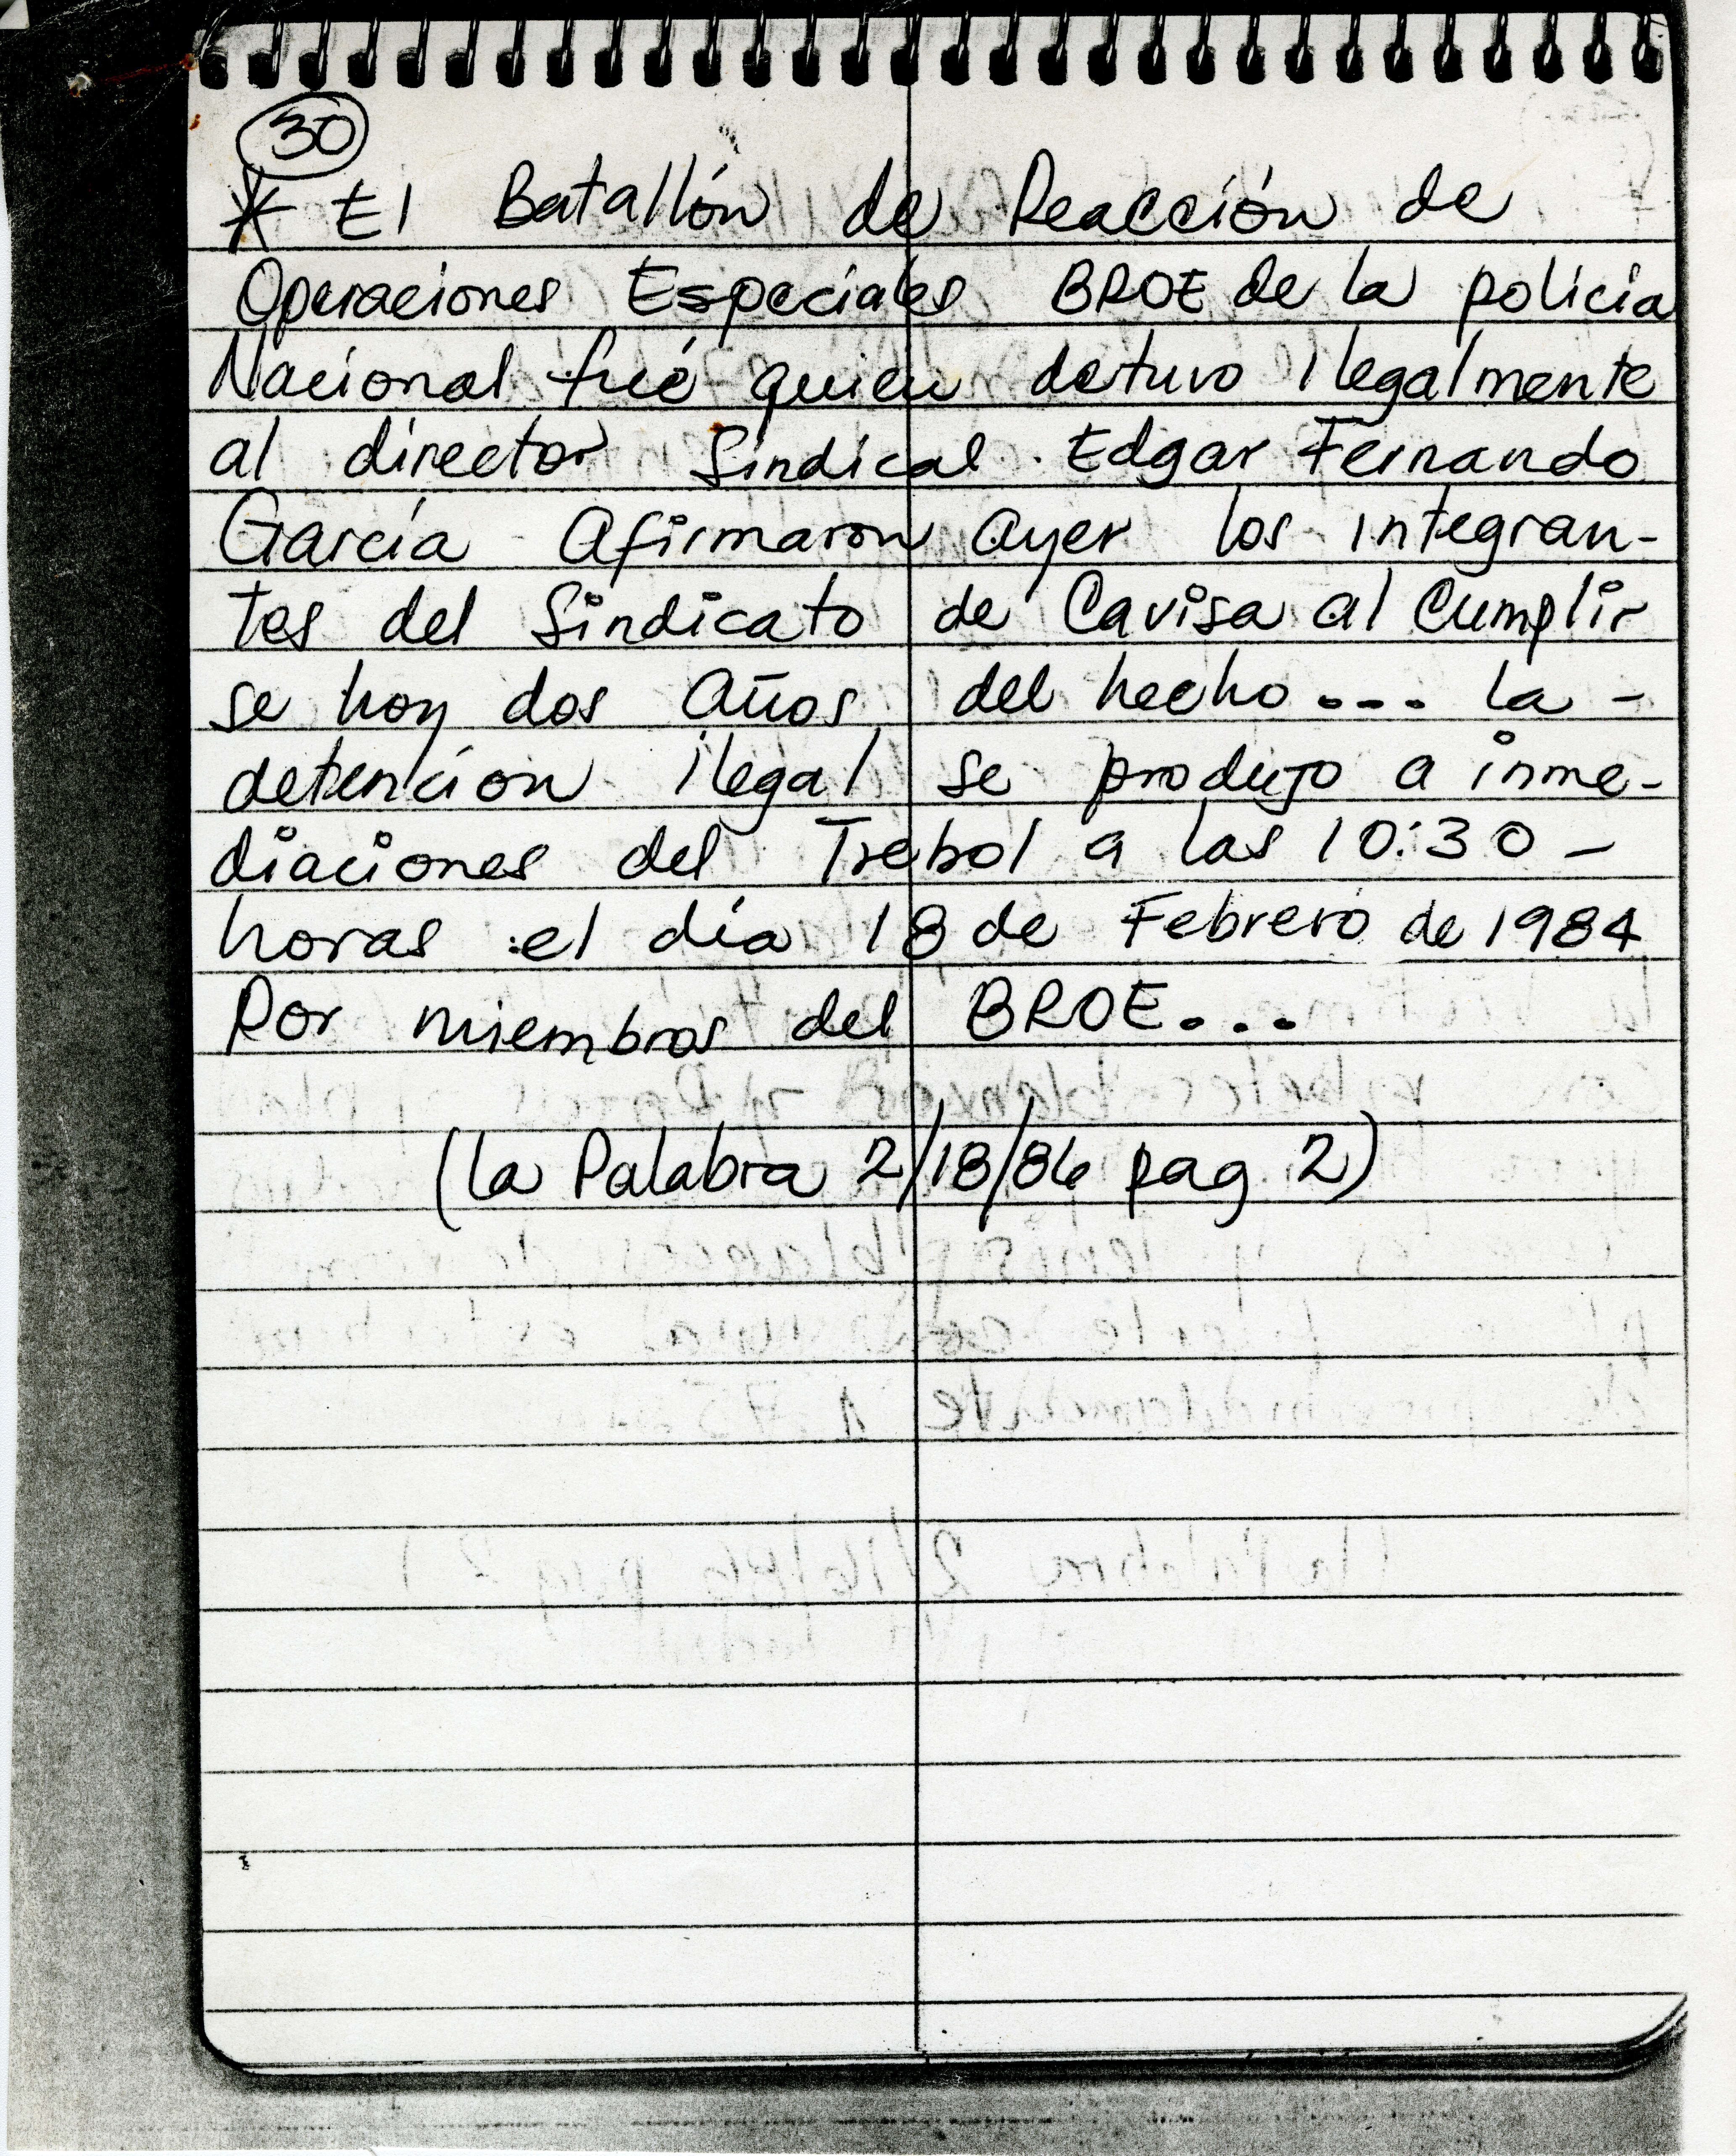 30
* El Batallón de Reacción de
Operaciones Especiales BROE de la policia
Nacional fué quien detuvo Ilegalmente
al director Sindical. Edgar Fernando
García Afirmaron ayer los integran-
tes del Sindicato de Cavisa al Cumplir
se hoy dos años del hecho... la -
detención ilegal se produjo a inme-
diaciones del Trebol a las 10:30 -
horas el día 18 de Febrero de 1984
Por miembros del BROE...
(la Palabra 2/18/86 pag 2)